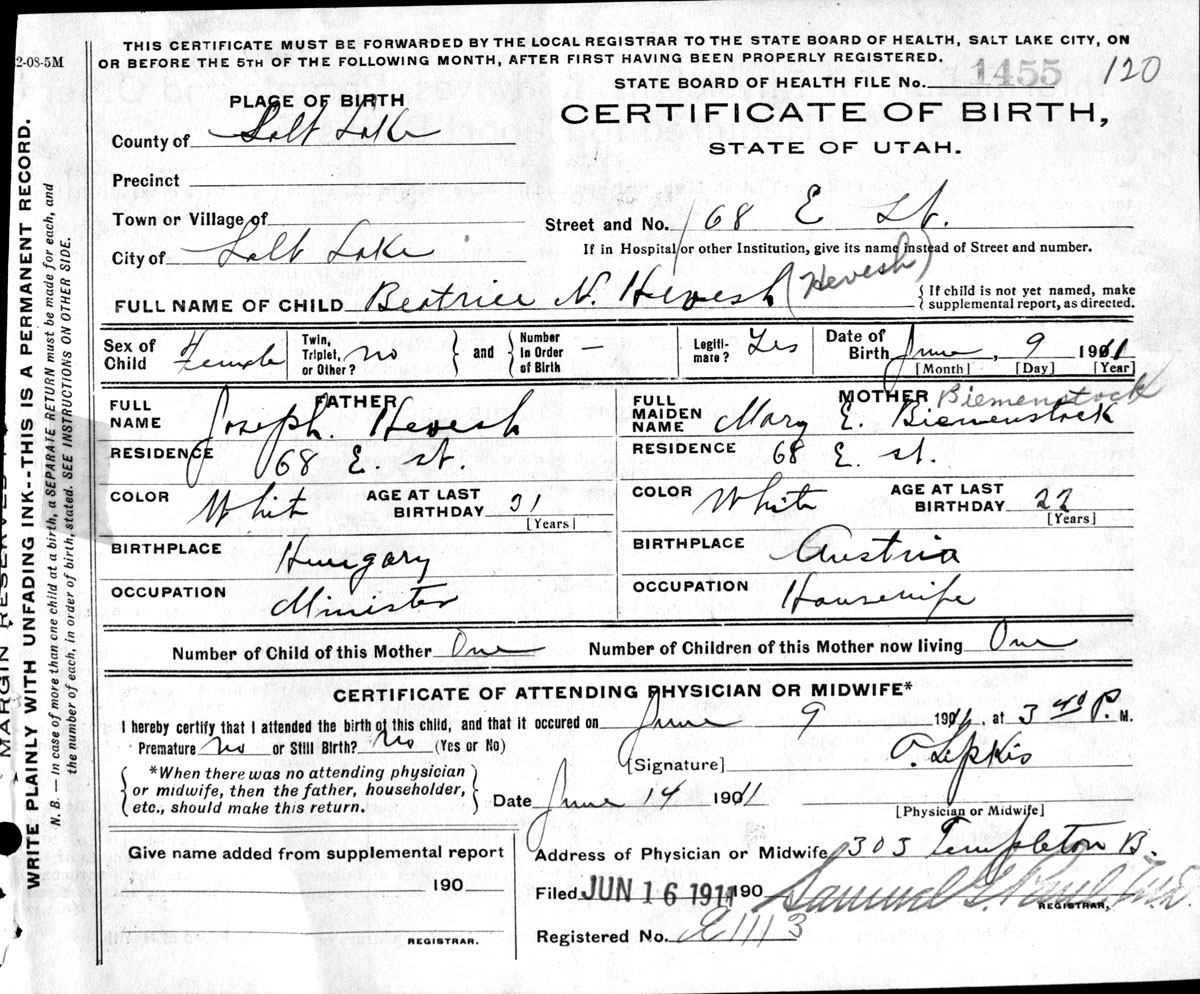 THIS CERTIFICATE MUST BE FORWARDED BY THE LOCAL REGISTRAR TO THE STATE BOARD OF HEALTH, SALT LAKE CITY, ON
2-08-5M OR BEFORE THE 5TH OF THE FOLLOWING MONTH, AFTER FIRST HAVING BEEN PROPERLY REGISTERED.
STATE BOARD OF HEALTH FILE No. 1455 120
PLACE OF BIRTH
CERTIFICATE OF BIRTH,
County of Salt Lake
STATE OF UTAH.
Precinct
Town or Village of
Street and No. 68 E St.
City of Salt Lake
If in Hospital or other Institution, give its name instead of Street and number.
FULL NAME OF CHILD Beatrice N. Hevesh (Hevesh)
{ If child is not yet named, make
supplemental report, as directed.
Sex of Child Female
Twin, Triplet, or Other? no
and
Number In Order of Birth —
Legiti-mate? Yes
Date of Birth June, 9 1911
[Month] [Day] [Year]
FATHER
FULL NAME Joseph. Hevesh
RESIDENCE 68 E. st.
COLOR White
AGE AT LAST BIRTHDAY 31
[Years]
BIRTHPLACE Hungary
OCCUPATION Minister
MOTHER Biemenstock
FULL MAIDEN NAME Mary E. Biemenstock
RESIDENCE 68 E. st.
COLOR White
AGE AT LAST BIRTHDAY 22
[Years]
BIRTHPLACE Austria
OCCUPATION Housewife
Number of Child of this Mother One
Number of Children of this Mother now living One
CERTIFICATE OF ATTENDING PHYSICIAN OR MIDWIFE*
I hereby certify that I attended the birth of this child, and that it occured on June 9 1911, at 3 40 P. M.
Premature no or Still Birth? no (Yes or No)
*When there was no attending physician
or midwife, then the father, householder,
etc., should make this return.
[Signature] O. Lipkis
Date June 14 1911
[Physician or Midwife]
Give name added from supplemental report
190
REGISTRAR.
Address of Physician or Midwife 303 Templeton B.
Filed JUN 16 1911 190 Samuel G. Paul
REGISTRAR,
Registered No.
MARGIN RESERVED
WRITE PLAINLY WITH UNFADING INK--THIS IS A PERMANENT RECORD.
N. B. — In case of more than one child at birth, a SEPARATE RETURN must be made for each, and
the number of each, in order of birth, stated. SEE INSTRUCTIONS ON OTHER SIDE.